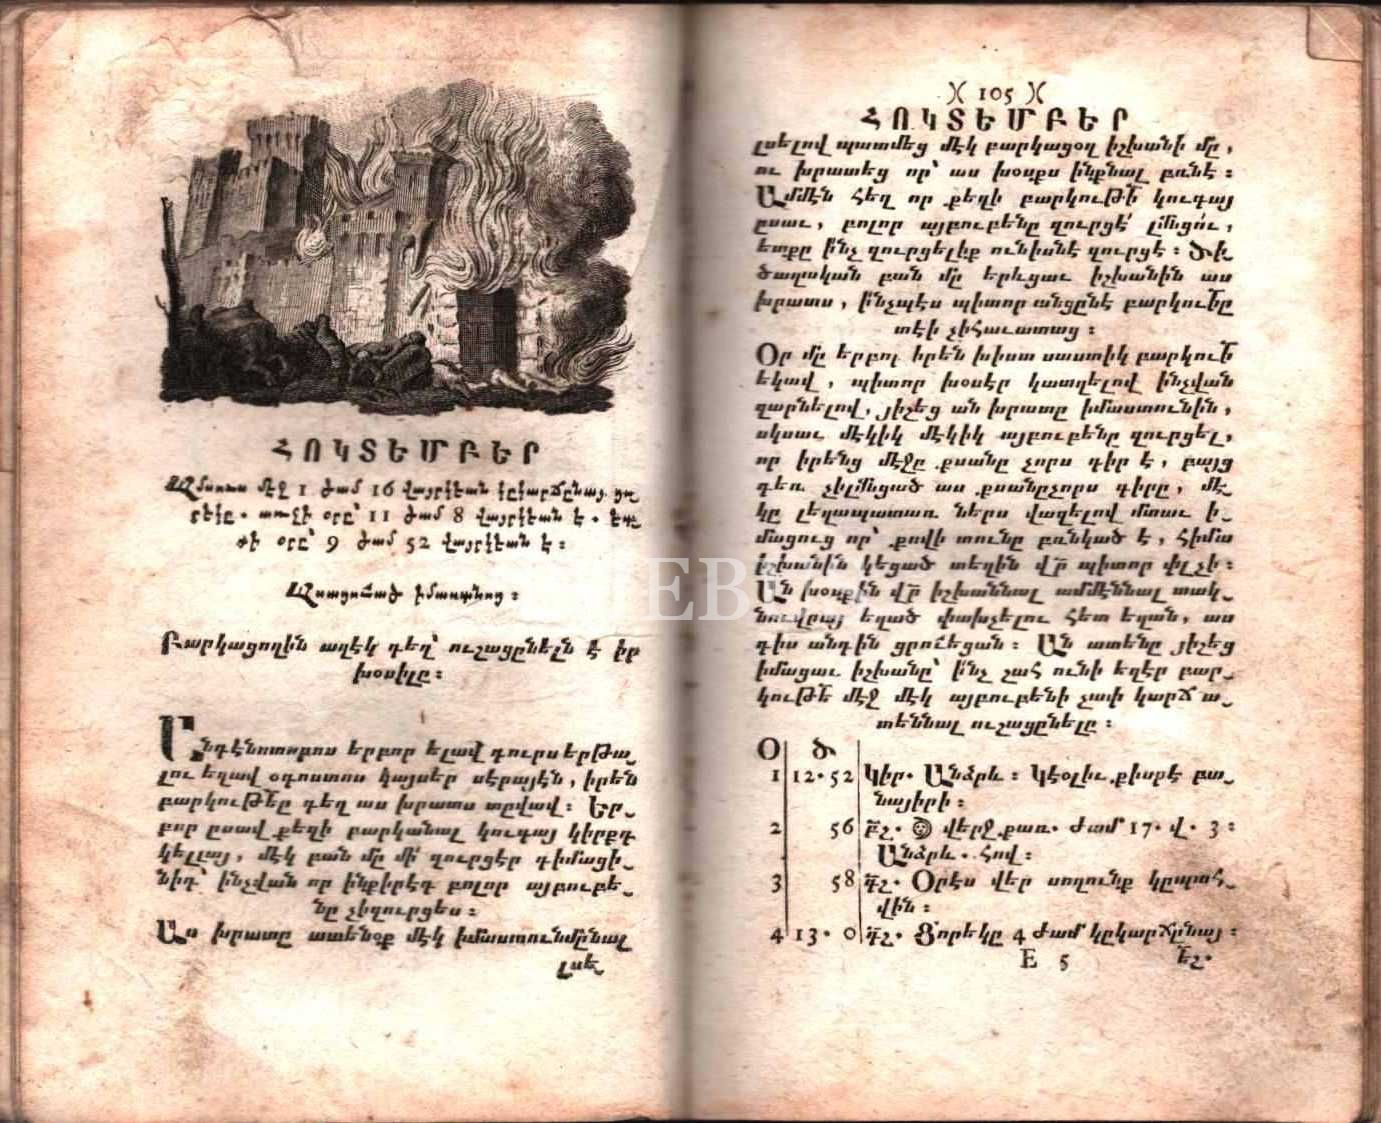 ՀՈԿՏԵՄԲԵՐ
Ամսուս մէջ 1 ժամ 16 վայրկեան կըկարճընայ ցո֊
րեկը. առջի օրը՝ 11 ժամ 8 վայրկեան է. ետ֊
քի օրը՝ 9 ժամ 52 վայրկեան է։
Մնացուած իմաստնոց։
Բարկացողին աղէկ դեղ՝ ուշացընելն է իր
խօսիլը։
Աթենոտորոս երբոր ելավ դուրս երթա֊
լու եղավ օգոստոս կայսեր սէրայէն, իրեն
բարկութեը դեղ աս խրատս տըվավ։ Եր֊
բոր ըսավ քեզի բարկանալ կուգայ կիրքդ
կելլայ, մէկ բան մը մի՛ զուրցեր դիմացի֊
նիդ՝ ինչվան որ ինքիրեդ բոլոր այբուբե֊
նը չիզուրցես։
Աս խրատը ատենօք մէկ իմաստունմընալ
լսե֊
105
ՀՈԿՏԵՄԲԵՐ
լսելով պատմեց մէկ բարկացօղ իշխանի մը,
ու խրատեց որ՝ աս խօսքս ինքնալ բռնէ։
Ամմէն հեղ որ քեզի բարկութի կուգայ
ըսաւ, բոլոր այբուբենը զուրցէ՛ լմնցո՛ւ,
ետքը ի՛նչ զուրցելիք ունիսնէ զուրցէ։ Ծի֊
ծաղական բան մը երևցաւ իշխանին աս
խրատս, ի՛նչպէս պիտոր անցընէ բարկուիը
տէի չիհաւատաց։
Օր մը երբոլ իրեն խիստ սաստիկ բարկուի
եկավ, պիտոր խօսէր կատղելով ինչվան
զարնելով, յիշեց ան խրատը իմաստունին,
սկսաւ մէկիկ մէկիկ այբուբենը զուրցել,
որ իրենց մէջը քսանը չորս գիր է, բայց
դեռ չիլմնցած աս քսանըչորս գիրը, մէ֊
կը լեղապատառ ներս վազելով մտաւ ի֊
մացուց որ՝ քովի տունը բռնկած է, հիմա
իշխանին կեցած տեղին վր պիտոր փլչի։
Ան խօսքին վր իշխաննալ ամմէննալ տակ֊
նուվրայ եղած փախչելու հետ եղան, աս
դիս անդին ցրուեցան։ Ան ատենը յիշեց
իմացաւ իշխանը՝ ի՛նչ շահ ունի եղէր բար֊
կութե մէջ մէկ այբուբենի չափ կարճ ա֊
տեննալ ուշացընելը։
Օ Ծ
1 12. 52 Կիր. Անձրև։ Կէօլիւ քիսրէ բա֊
նայիրի։
2 56 բշ. վերջ քառ. ժամ 17. վ. 3։
Անձրև. Հով։
3 58 գշ. Օրէս վեր սողունք կըպահ֊
վին։
4 13. 0 դշ. Ցորեկը 4 ժամ կըկարճընայ։
E 5 եշ.